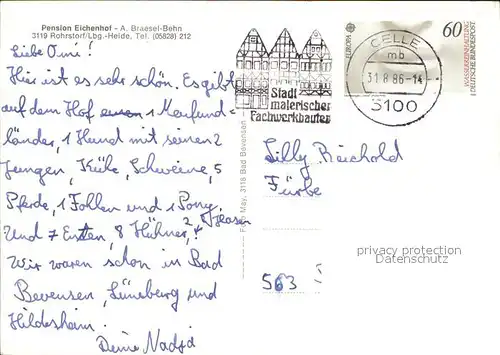 Pension Eichenhof - A. Braesel-Behn
3119 Rohrstorf/Lbg.-Heide, Tel. (05828) 212
Liebe Omi!
Hier ist es sehr schön. Es gibt
auf dem Hof einen 1 Neufund-
länder, 1 Hund mit seinen 2
Jungen, Kühe, Schweine, 5
Pferde, 1 Fohlen und 1 Pony.
Und 7 Enten, 8 Hühner, 2 Hasen
Wir waren schon in Bad
Bevensen, Lüneburg und
Hildesheim.
Deine Nadja
Foto May, 3118 Bad Bevensen
Stadt
malerischer
Fachwerkbauten
CELLE
mb
31.8.86-14
3100
EUROPA
60
DEUTSCHE BUNDESPOST
Silly Reichold
Fürbe
563
privacy protection
Datenschutz